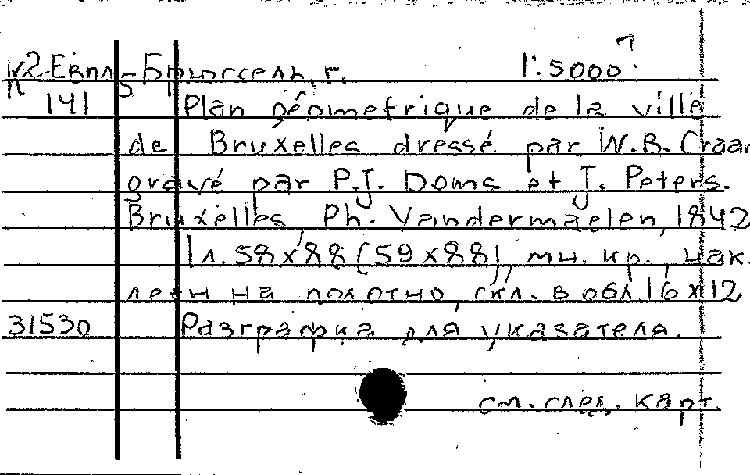 К2-Евпл-Брюссель, г. 1:5000
141 Plan géometrique de la ville
de Bruxelles dressé par W.B. Craan
gravé par P.J. Doms et J. Peters.
Bruxelles, Ph. Vandermaelen, 1842
1л. 58x88 (59x88), мн. кр., нак
леен на полотно, скл. в обл. 16x12
31530 Разграфка для указателя.
см. след. карт.